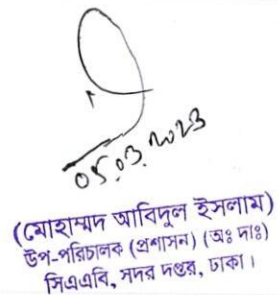 05.03.2023
(মোহাম্মদ আবিদুল ইসলাম)
উপ-পরিচালক (প্রশাসন) (অঃ দাঃ)
সিএএবি, সদর দপ্তর, ঢাকা।